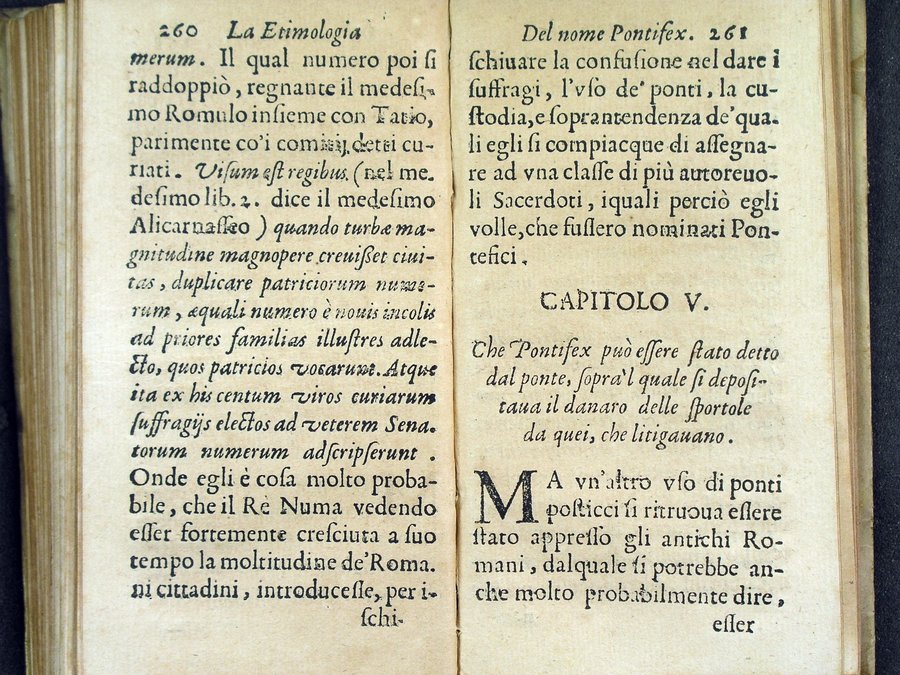 260 La Etimologia
merum. Il qual numero poi ſi
raddoppiò, regnante il medeſi-
mo Romulo inſieme con Tatio,
parimente co'i comitij detti cu-
riati. Viſum eſt regibus (nel me.
deſimo lib. 2. dice il medeſimo
Alicarnaſſeo) quando turbæ ma-
gnitudine magnopere creuiſſet ciui-
tas, duplicare patriciorum nume-
rum, æquali numero è nouis incolis
ad priores familias illuſtres adle-
cto, quos patricios vocarunt. Atque
ita ex his centum viros curiarum
ſuffragijs electos ad veterem Sena.
torum numerum adſcripſerunt.
Onde egli è coſa molto proba-
bile, che il Rè Numa vedendo
eſſer fortemente creſciuta a ſuo
tempo la moltitudine de'Roma.
ni cittadini, introduceſſe, per i-
ſchi-
Del nome Pontifex. 261
ſchiuare la confuſione nel dare i
ſuffragi, l'vſo de' ponti, la cu-
ſtodia, e ſoprantendenza de'qua-
li egli ſi compiacque di aſſegna-
re ad vna claſſe di più autoreuo-
li Sacerdoti, iquali perciò egli
volle, che fuſſero nominati Pon-
tefici.
CAPITOLO V.
Che Pontifex può eſſere ſtato detto
dal ponte, ſopra'l quale ſi depoſi-
taua il danaro delle ſportole
da quei, che litigauano.
MA vn'altro vſo di ponti
poſticci ſi ritruoua eſſere
ſtato appreſſo gli antichi Ro-
mani, dalquale ſi potrebbe an-
che molto probabilmente dire,
eſſer